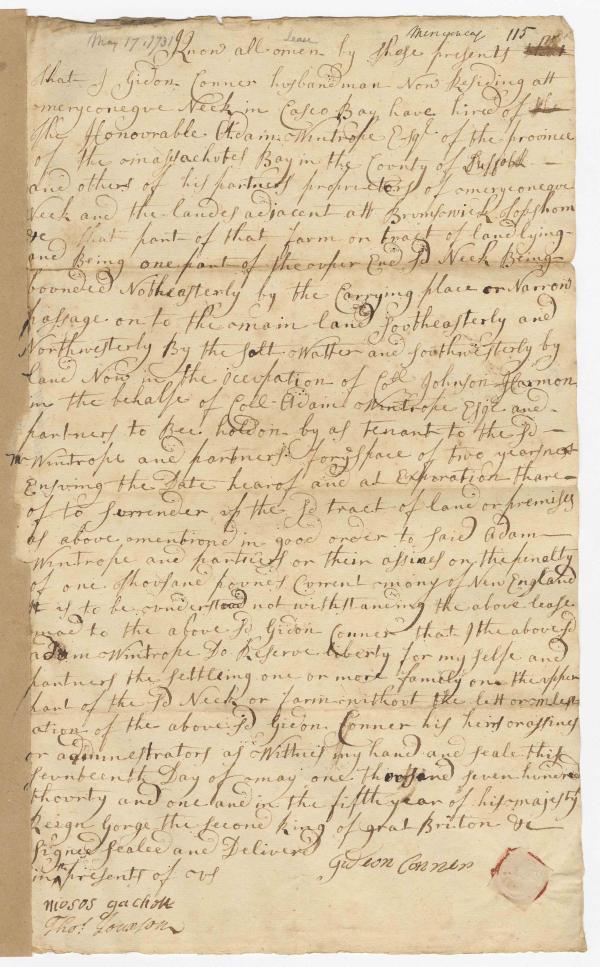 May 17. 1731 lease Meryconeag 115
Know all omen by These presents
that I Gidon Conner husbandman Now Residing att
omeryconegue Neck in Casco Bay have hired of
The Honourable Adam Wintrope Esqr of the province
of the omassachutes Bay in the County of Suffolk
and others of his partners propriectors of omeryconegue
Neck and the landes adjacent att Brunswick Topshom
&c that part of that farm or tract of land lying
and Being one part of the upper End sd Neck Being
bounded Notheasterly by the Carrying place or Narrow
passage on to the omain land Southeasterly and
Northwesterly By the Salt Watter and southwesterly by
land Now in the occupation of Coll Johnson Harmon
in the behalfe of Coll Adam Wintrope Esqr and
partners to Bee holdon by as tenant to the sd
Mr Wintrope and partners for ye space of two years next
Ensuing the Date hearof and at Expiration thare
of to Surrender up the sd tract of land or premises
as above omentiond in good order to said Adam
Wintrope and partners or their assines on the penalty
of one thousand pounds Current mony of New England
it is to be understood not withstanding the above lease
mead to the above sd Gidon Conner that I the above sd
adam Wintrope Do Reserve liberty for my selfe and
partners the settleing one or more family one the upper
part of the sd Neck or farm without the lett or molest
ation of the above sd Gidon Conner his heirs or assines
or administrators as Wittnes my hand and seale this
Sevnteenth Day of omay one thousand seven hundred
thourty and one and in the fifth year of his majesty
Reign Gorge the second King of grat Briton &c
Signed Sealed and Deliverd
in ye presents of us
Gideon Conner
mosos gachon
Thos.